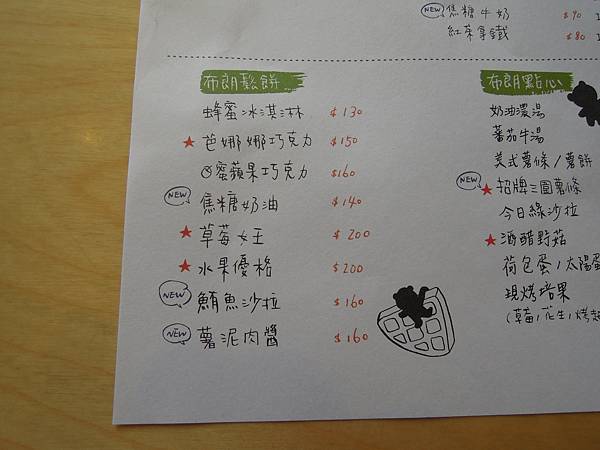 NEW 焦糖牛奶 $90
紅茶拿鐵 $80
布朗鬆餅
蜂蜜冰淇淋 $130
★芭娜娜巧克力 $150
蜜蘋果巧克力 $160
NEW 焦糖奶油 $140
★草莓女王 $200
★水果優格 $200
NEW 鮪魚沙拉 $160
NEW 薯泥肉醬 $160
布朗點心
奶油濃湯
蕃茄牛湯
美式薯條/薯餅
NEW ★招牌三圓薯條
今日綠沙拉
★酒醋野菇
荷包蛋/太陽蛋
現烤培果
(草莓/花生/烤起